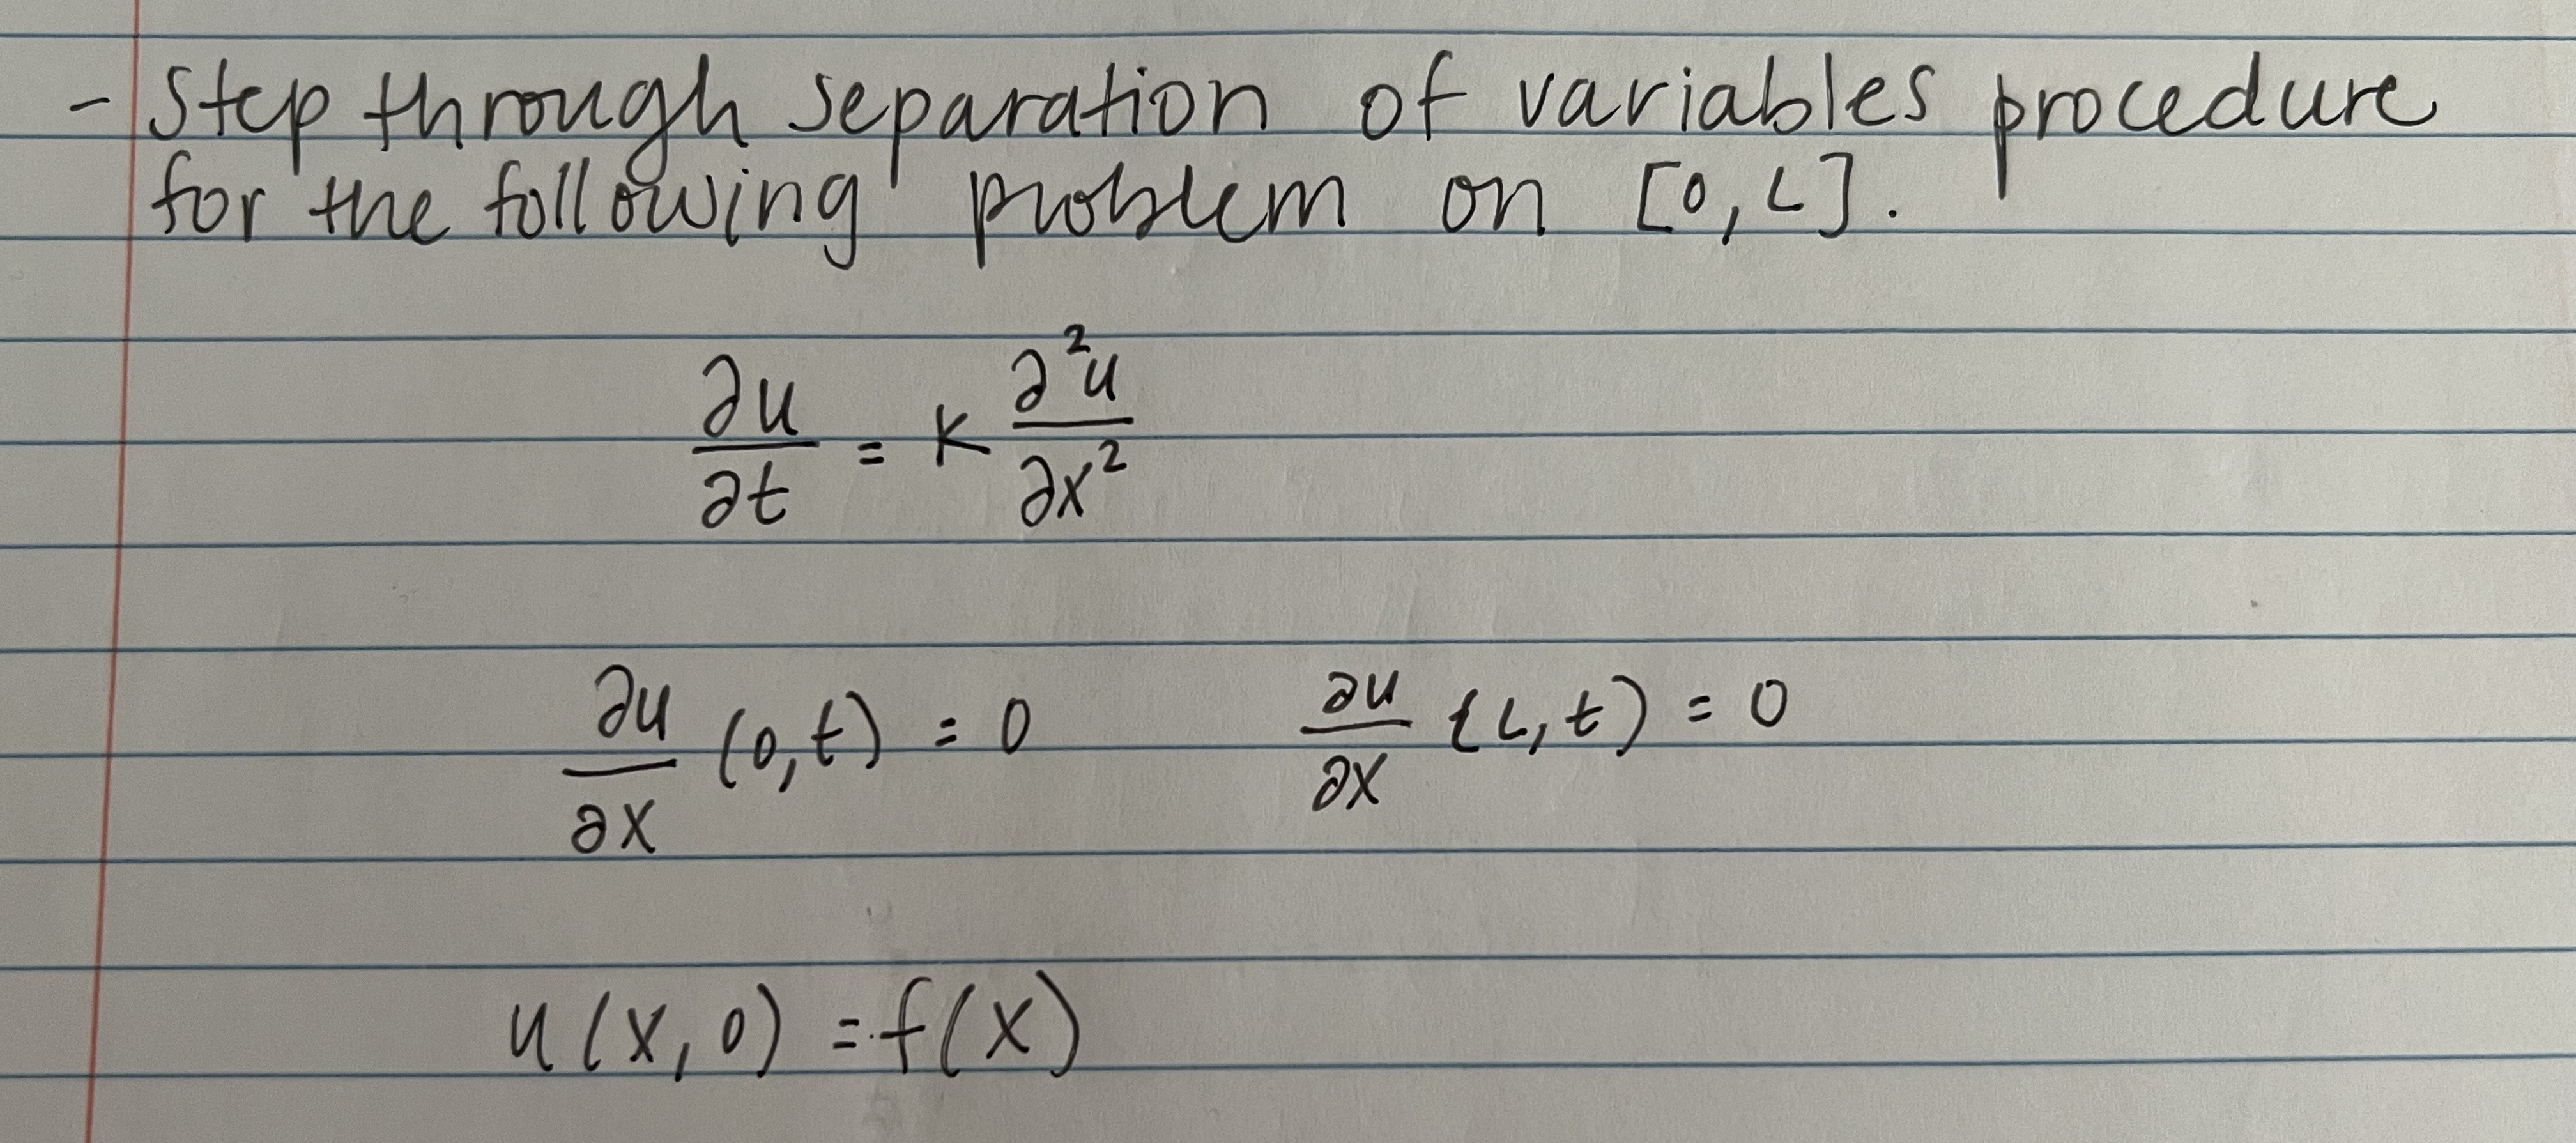 - Step through separation of variables procedure
for the following problem on [0, L].
∂u/∂t = K ∂²u/∂x²
∂u/∂x (0,t) = 0    ∂u/∂x (L,t) = 0
u(x,0) = f(x)